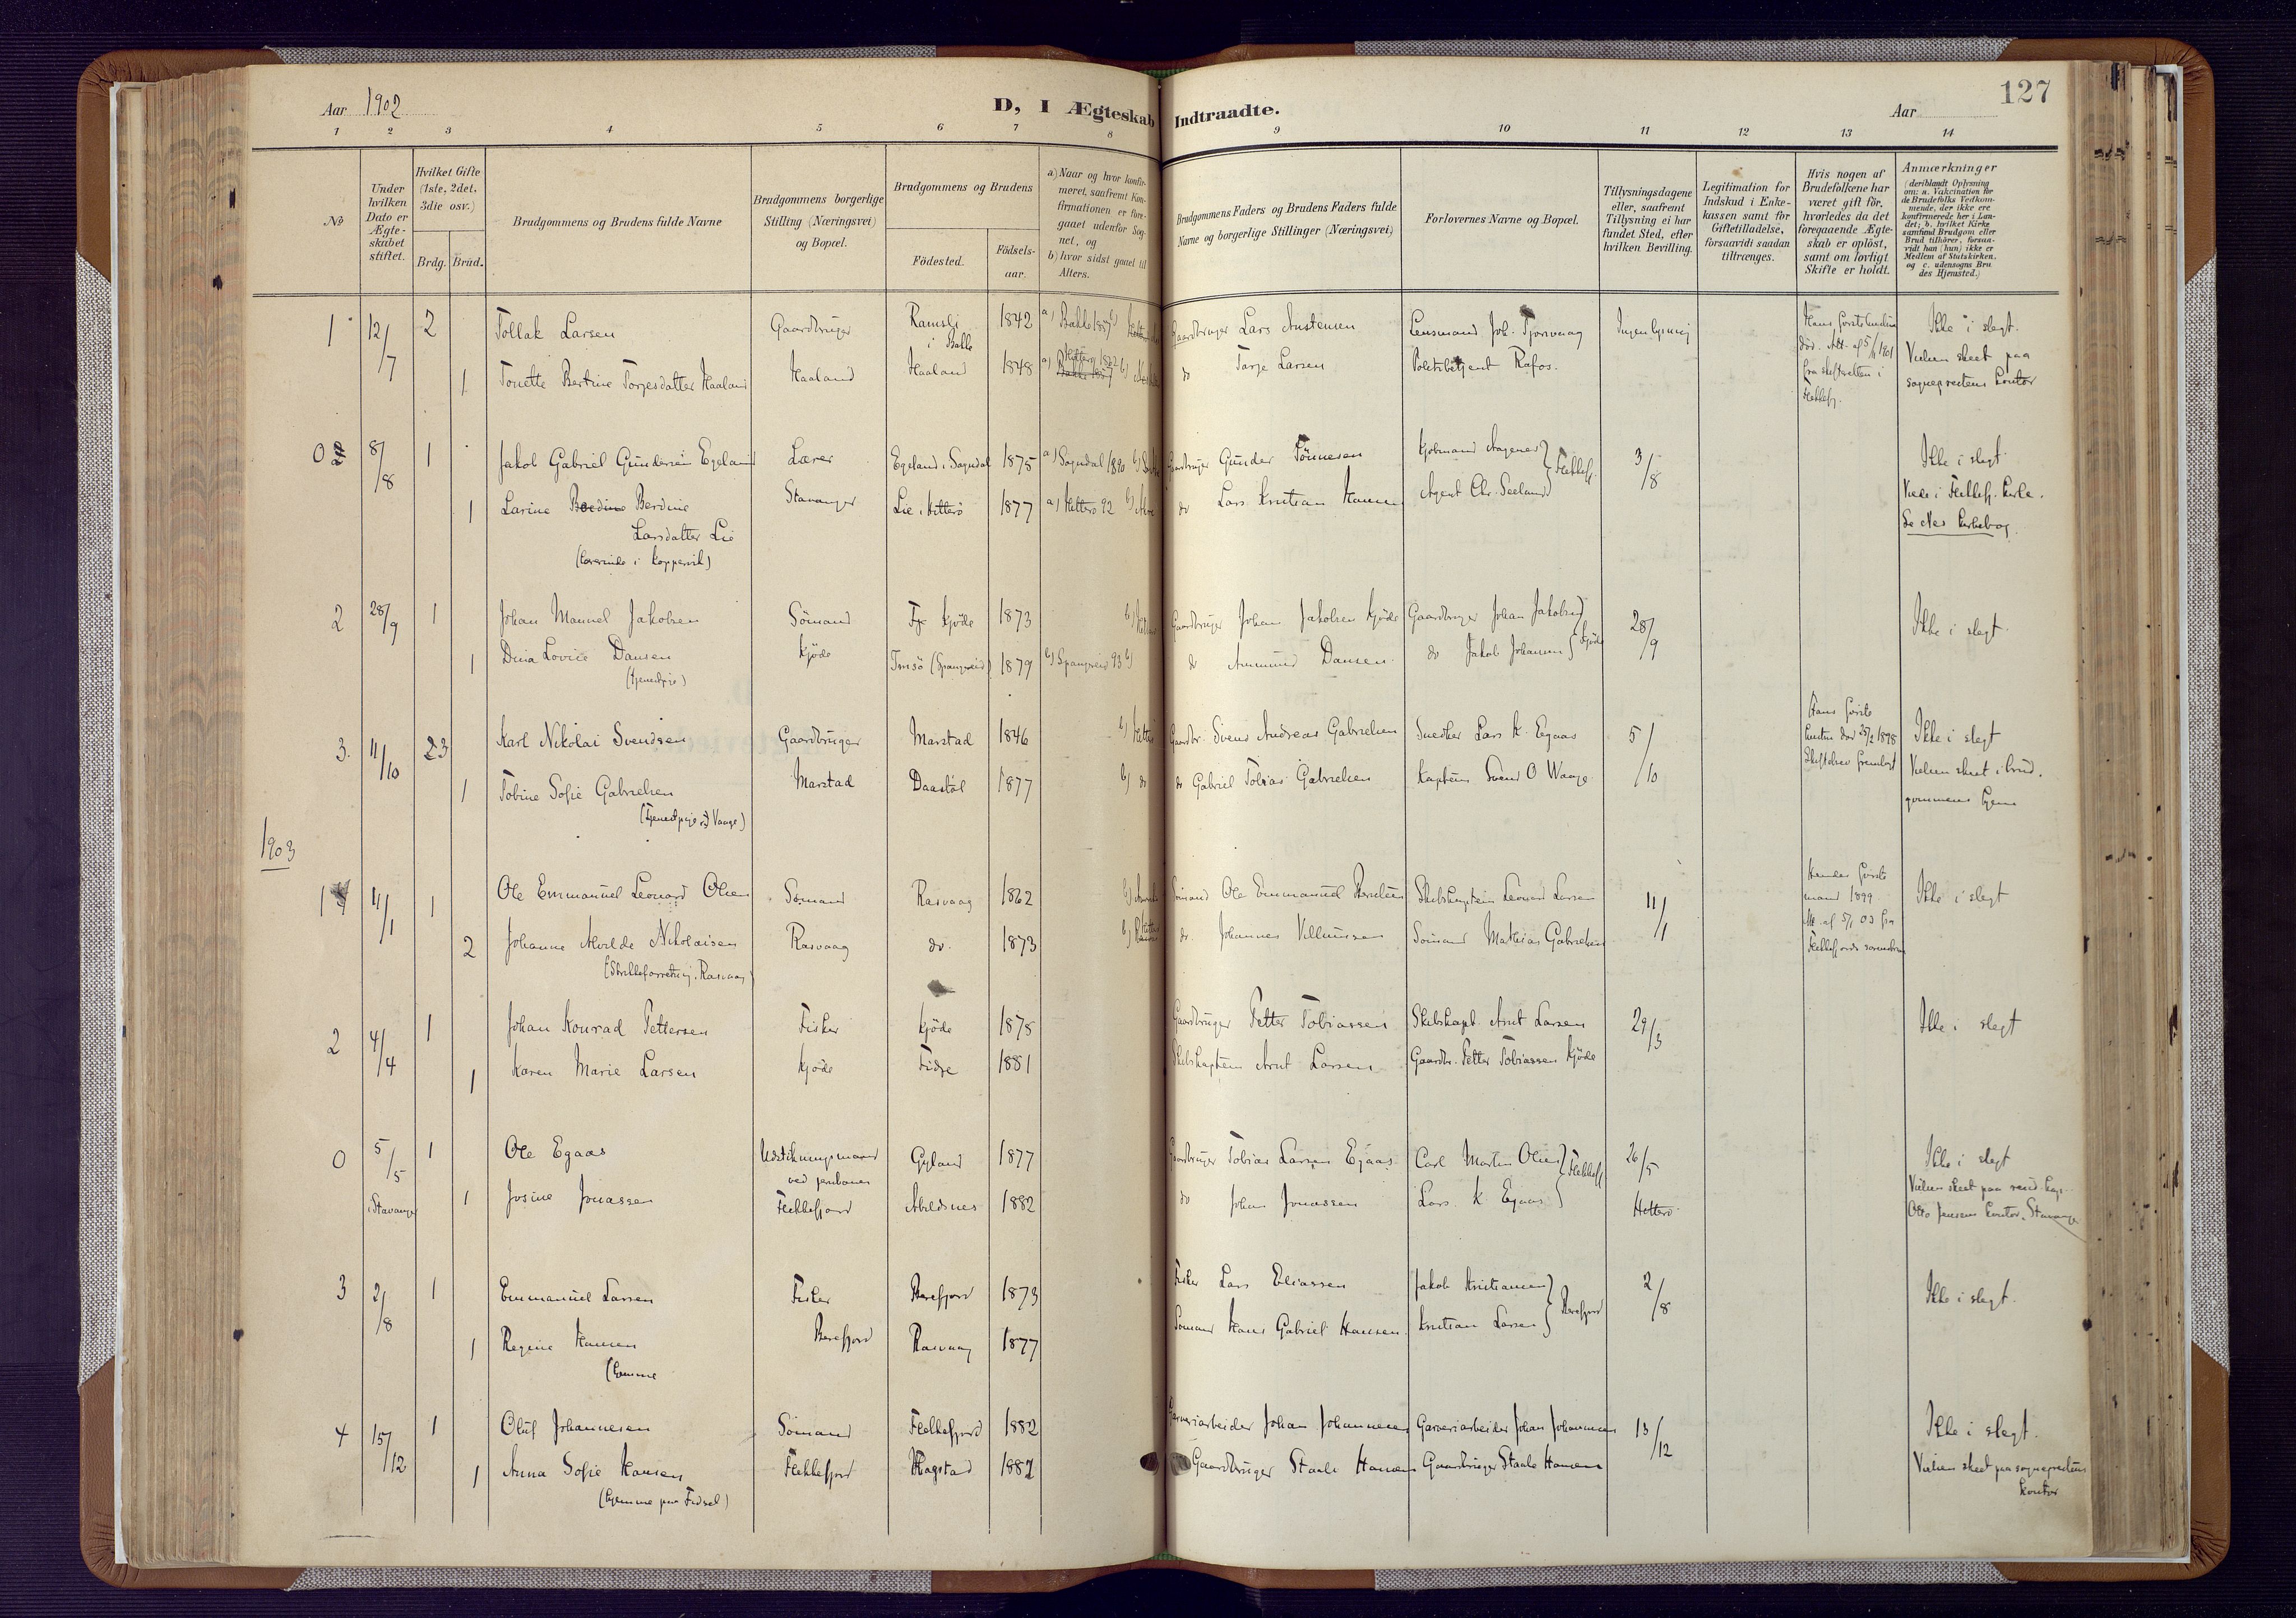 127
Aar 1902
D, I Ægteskab Indtraadte.
Aar
1 2 3 4 5 6 7 8 9 10 11 12 13 14
No
Under hvilken Dato er Ægte-skabet stiftet.
Hvilket Gifte (1ste, 2det, 3die osv.)
Brdg. Brud.
Brudgommens og Brudens fulde Navne
Brudgommens borgerlige Stilling (Næringsvei) og Bopæl.
Brudgommens og Brudens
Fødested. Fødsels-aar.
a) Naar og hvor konfir-meret, saafremt Kon-firmationen er fore-gaaet udenfor Sog-net, og
b) hvor sidst gaaet til Alters.
Brudgommens Faders og Brudens Faders fulde Navne og borgerlige Stillinger (Næringsvei)
Forlovernes Navne og Bopæl.
Tillysningsdagene eller, saafremt Tillysning ei har fundet Sted, efter hvilken Bevilling.
Legitimation for Indskud i Enke-kassen samt for Giftetilladelse, forsaavidt saadan tiltrænges.
Hvis nogen af Brudefolkene har været gift før, hvorledes da det foregaaende Ægte-skab er opløst, samt om lovligt Skifte er holdt.
Anmærkninger
(deriblandt Oplysning om: a. Vakcination for de Brudefolks Vedkom-mende, der ikke ere konfirmerede her i Lan-det; b. hvilket Kirke-samfund Brudgom eller Brud tilhører, forsaa-vidt han (hun) ikke er Medlem af Statskirken, og c. udensogns Bru-des Hjemsted.)
1 12/7 2 Tollak Larsen Gaardbruger Ramsli i Bakke 1842 a) Bakke 1857 b) Gaardbruger Lars Austensen Lensmand Joh. Tjorsvaag Ingen lysning Ikke i slegt.
1 Tonette Bertine Torjesdatter Haaland Haaland Haaland 1848 a) Hitterø b) do Tarje Larsen Politibetjent Rafos. Vielsen skeet paa sogneprestens kontor
0 8/8 1 Jakob Gabriel Gundersen Egeland Lærer Egeland i Sogndal 1875 a) Sogndal 1890 b) Gaardbruger Gunder Tønnesen Kjøbmand Aagenes 3/8 Ikke i slegt
1 Larine Berdine Stavanger Lie i Hitterø 1877 a) Hitterø 92 b) do Lars Kristian Hansen Agent Chr. Seeland } Flekkefj. Viede i Flekkefj. kirke.
Larsdatter Lie Se Nes kirkebog.
(lærerinde i Koppervik)
2 28/9 1 Johan Manuel Jakobsen Sömand Kjöde 1873 b) Gaardbruger Johan Jakobsen Kjöde Gaardbruger Johan Jakobsen 28/9 Ikke i slegt
1 Dina Lovise Dansen Kjöde (Spangereid) 1879 a) Spangereid 93 b) do Ammund Dansen do Jakob Johansen } Kjöde
(tjenestpige)
3. 11/10 23 Karl Nikolai Svendsen Gaardbruger Marstad 1846 b) Gaardbr. Svend Andreas Gabrielsen Snedker Lars K. Egaas 5/10 Ikke i slegt
1 Tobine Sofie Gabrielsen Marstad Daastöl 1877 b) do do Gabriel Tobias Gabrielsen Kaptein Svend O Waage Vielsen skeet i brud-
(tjenestpige ved Vaage) gommens hjem
1903
1 11/1 1 Ole Emmanuel Leonard Olsen Sömand Rasvaag 1862 b) Sömand Ole Emmanuel Skibskaptein Leonard Larsen 11/1 Hendes første mand 1899 Ikke i slegt
2 Johanne Alvilde Nikolaisen Rasvaag do. 1873 b) do. Johannes Villumsen Sömand Mathias Gabrielsen
2 4/4 1 Johan Konrad Pettersen Fisker Kjöde 1875 Gaardbruger Petter Tobiassen Skibskapt. Arnt Larsen 29/3 Ikke i slegt
1 Karen Marie Larsen Kjöde Fidje 1881 Skibskaptein Arnt Larsen Gaardbr. Petter Tobiassen Kjöde
0 5/5 1 Ole Egaas Udstikningsmand ved jernbanen Gyland 1877 Gaardbruger Tobias Larsen Egaas Carl Martin Olsen 26/5 Ikke i slegt
i Stavanger 1 Josine Jonassen Flekkefjord Abeldsnes 1882 do Johan Jonassen Lars K. Egaas } Flekkefj Hitterø Vielsen skeet paa
Otto Jensens kontor, Stavanger
3 2/8 1 Emmanuel Larsen Fisker Berefjord 1873 Fisker Lars Eliassen Jakob Kristiansen 2/8 Ikke i slegt.
1 Regine Hansen Berefjord Rasvaag 1877 Sömand Hans Gabriel Hansen. Kristian Larsen } Berefjord
(hjemme
4 15/12 1 Oluf Johannesen Sömand Flekkefjord 1882 Garveriarbeider Johan Johannesen Garveriarbeider Johan Johannesen 13/12 Ikke i slegt.
1 Anna Sofie Hansen Flekkefjord Hagstad 1882 Gaardbruger Staale Hansen Gaardbruger Staale Hansen Vielsen skeet paa sogneprestens
(hjemme paa Fidsel) kontor